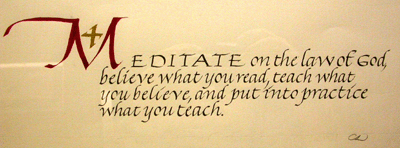 MEDITATE on the law of God,
believe what you read, teach what
you believe, and put into practice
what you teach.